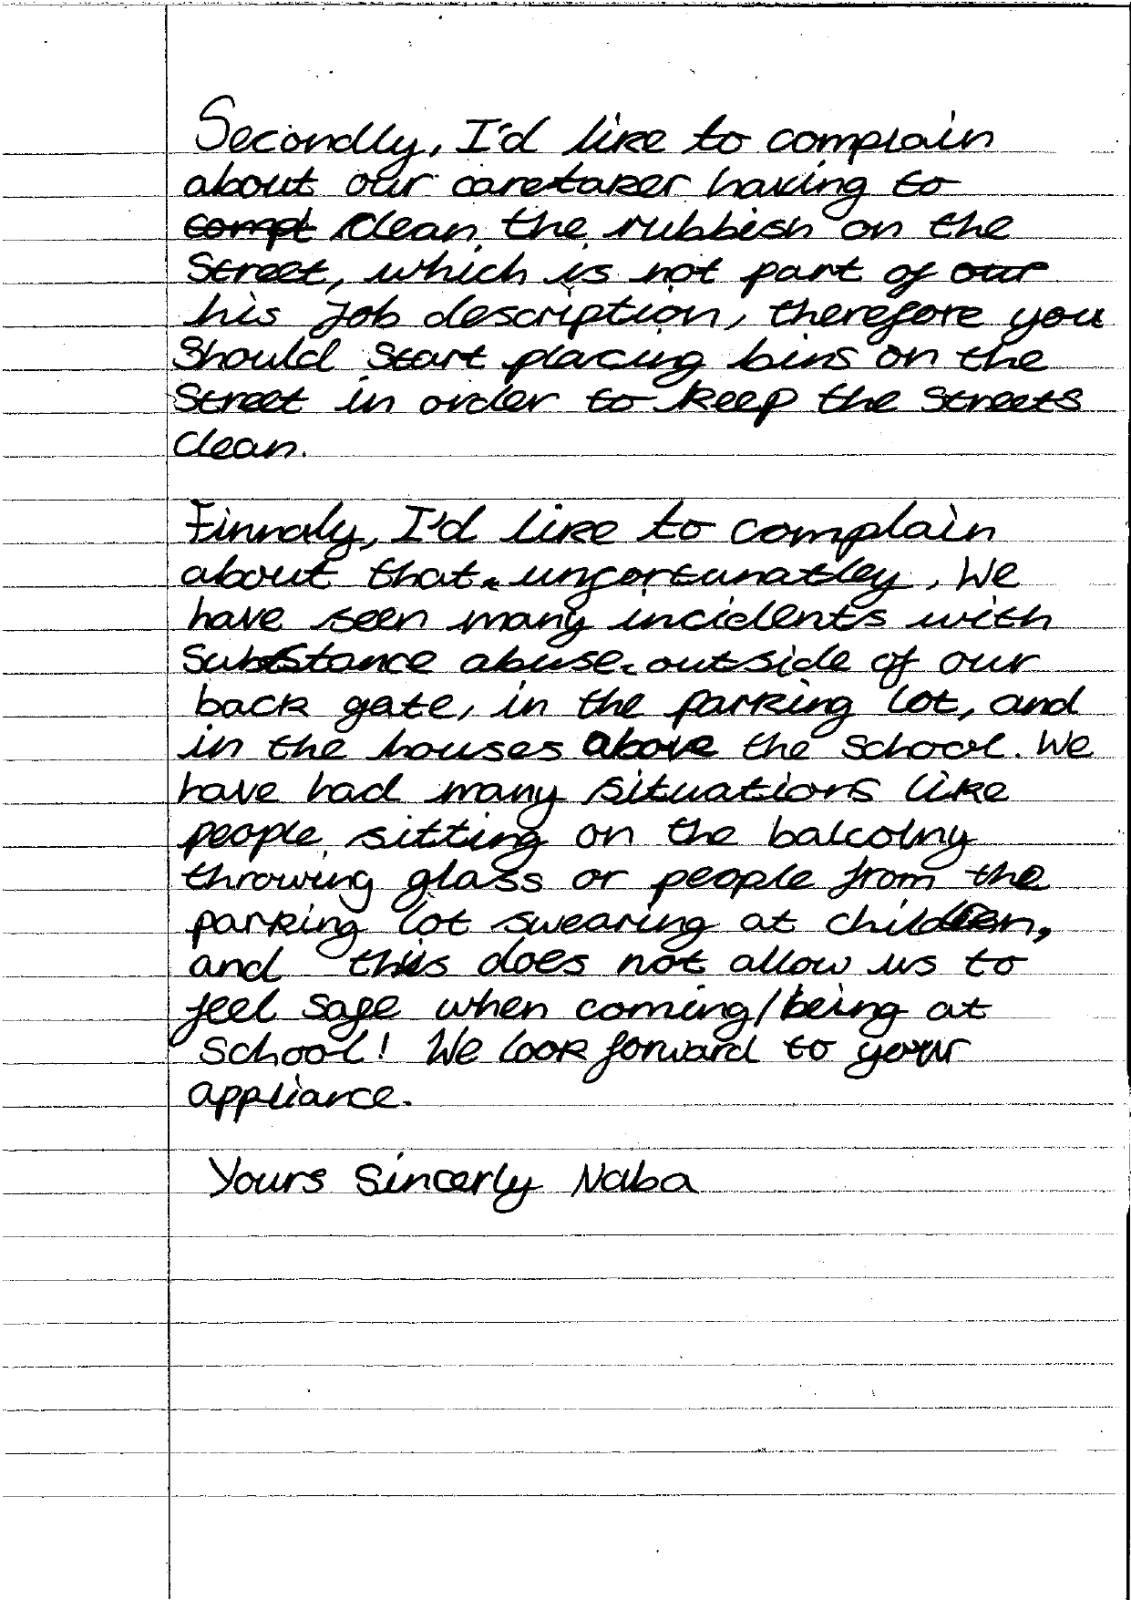 Secondly, I'd like to complain
about our caretaker having to
compt clean the rubbish on the
Street, which is not part of our
his Job description, therefore you
Should start placing bins on the
Street in order to keep the Streets
Clean.
Finnaly, I'd like to complain
about that unfortunatley, We
have seen many incidents with
Substance abuse outside of our
back gate, in the parking lot, and
in the houses above the School. We
have had many situations like
people sitting on the balcolny
throwing glass or people from the
parking lot swearing at children,
and this does not allow us to
feel safe when coming/being at
School! We look forward to your
appliance.
Yours Sincerly Naba